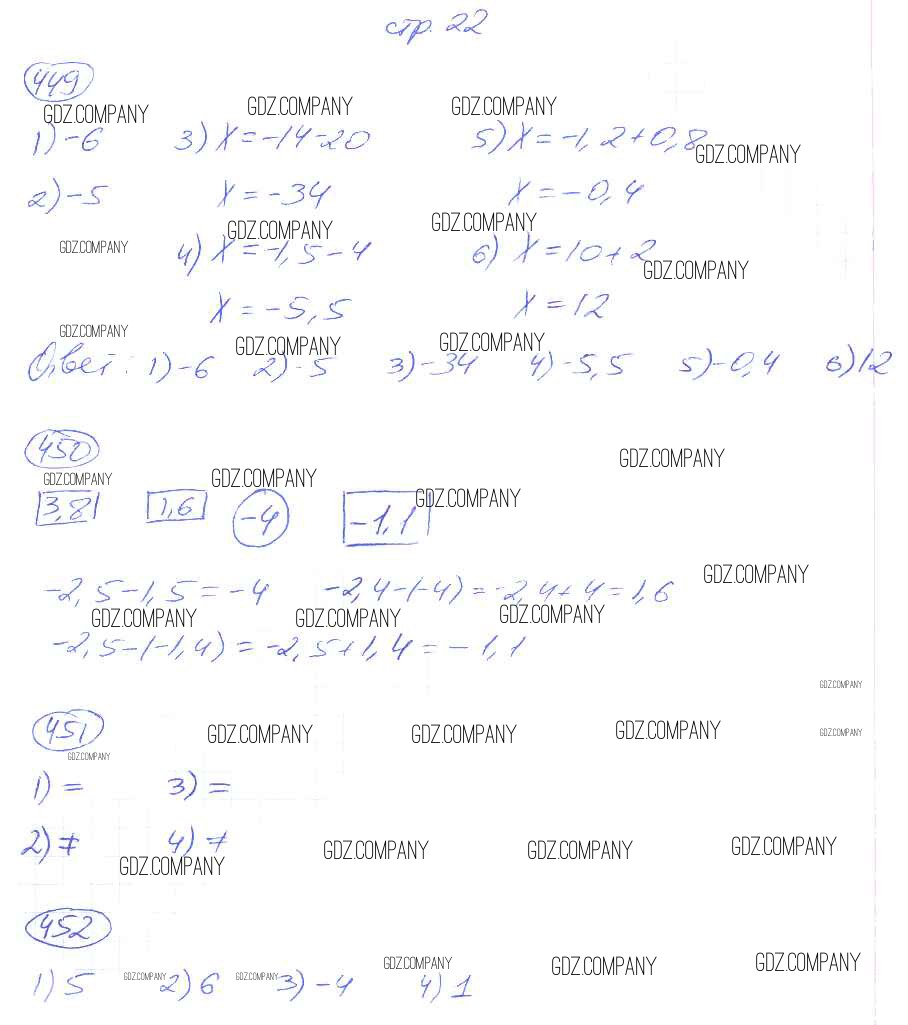 стр. 22
449
GDZ.COMPANY GDZ.COMPANY GDZ.COMPANY
1) -6 3) X = -14-20 5) X = -1,2+0,8
GDZ.COMPANY
2) -5 X = -34 X = -0,4
GDZ.COMPANY GDZ.COMPANY GDZ.COMPANY
4) X = -1,5-4 6) X = 10+2
GDZ.COMPANY
X = -5,5 X = 12
GDZ.COMPANY GDZ.COMPANY GDZ.COMPANY
Ответ: 1) -6 2) -5 3) -34 4) -5,5 5) -0,4 6) 12
450
GDZ.COMPANY GDZ.COMPANY GDZ.COMPANY GDZ.COMPANY
3,8 1,6 -4 -1,1
-2,5-1,5 = -4 -2,4-(-4) = -2,4+4 = 1,6
GDZ.COMPANY
GDZ.COMPANY GDZ.COMPANY GDZ.COMPANY
-2,5-(-1,4) = -2,5+1,4 = -1,1
GDZ.COMPANY
451
GDZ.COMPANY GDZ.COMPANY GDZ.COMPANY GDZ.COMPANY
GDZ.COMPANY
1) = 3) =
2) ≠ 4) ≠
GDZ.COMPANY GDZ.COMPANY GDZ.COMPANY GDZ.COMPANY
452
GDZ.COMPANY GDZ.COMPANY GDZ.COMPANY GDZ.COMPANY GDZ.COMPANY
1) 5 2) 6 3) -4 4) 1